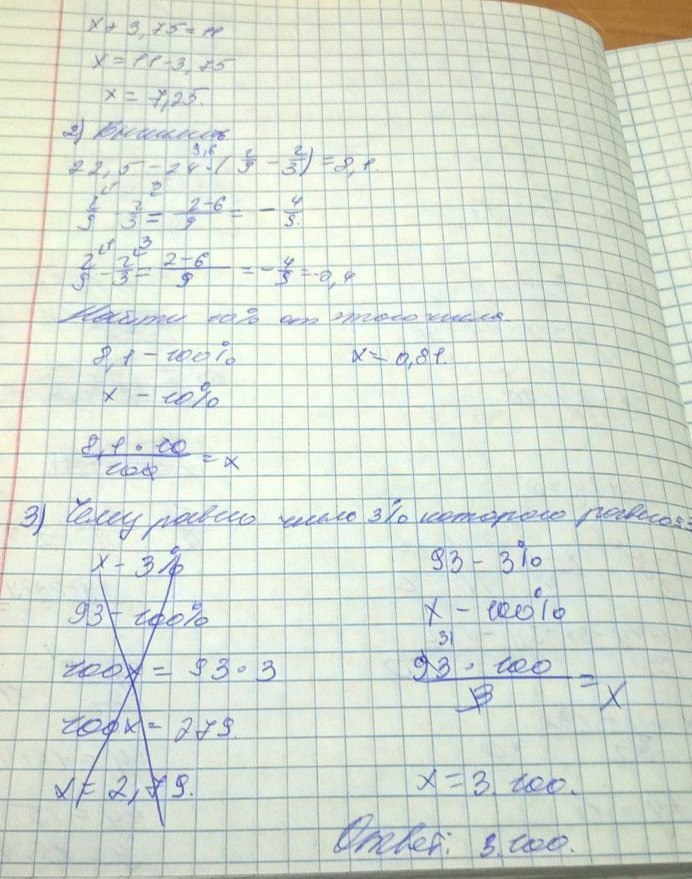 x + 3,75 = 11
x = 11 - 3,75
x = 7,25.
2) Вычислить
22,5 - 24 · ( 2/9 - 2/3 ) = 8,1
2/9 2/3 = (2-6)/9 = - 4/9.
2/9 - 2/3 = (2-6)/9 = - 4/9 = -0,4
Найти 10% от этого числа
8,1 - 100% x = 0,81.
x - 10%
(8,1 · 10)/100 = x
3) Чему равно число 3% которого равно
x - 3% 93 - 3%
93 - 100% x - 100%
100x = 93 · 3 31
(93 · 100)/3 = x
100x = 279.
x = 2,79. x = 3.100.
Ответ: 3.100.